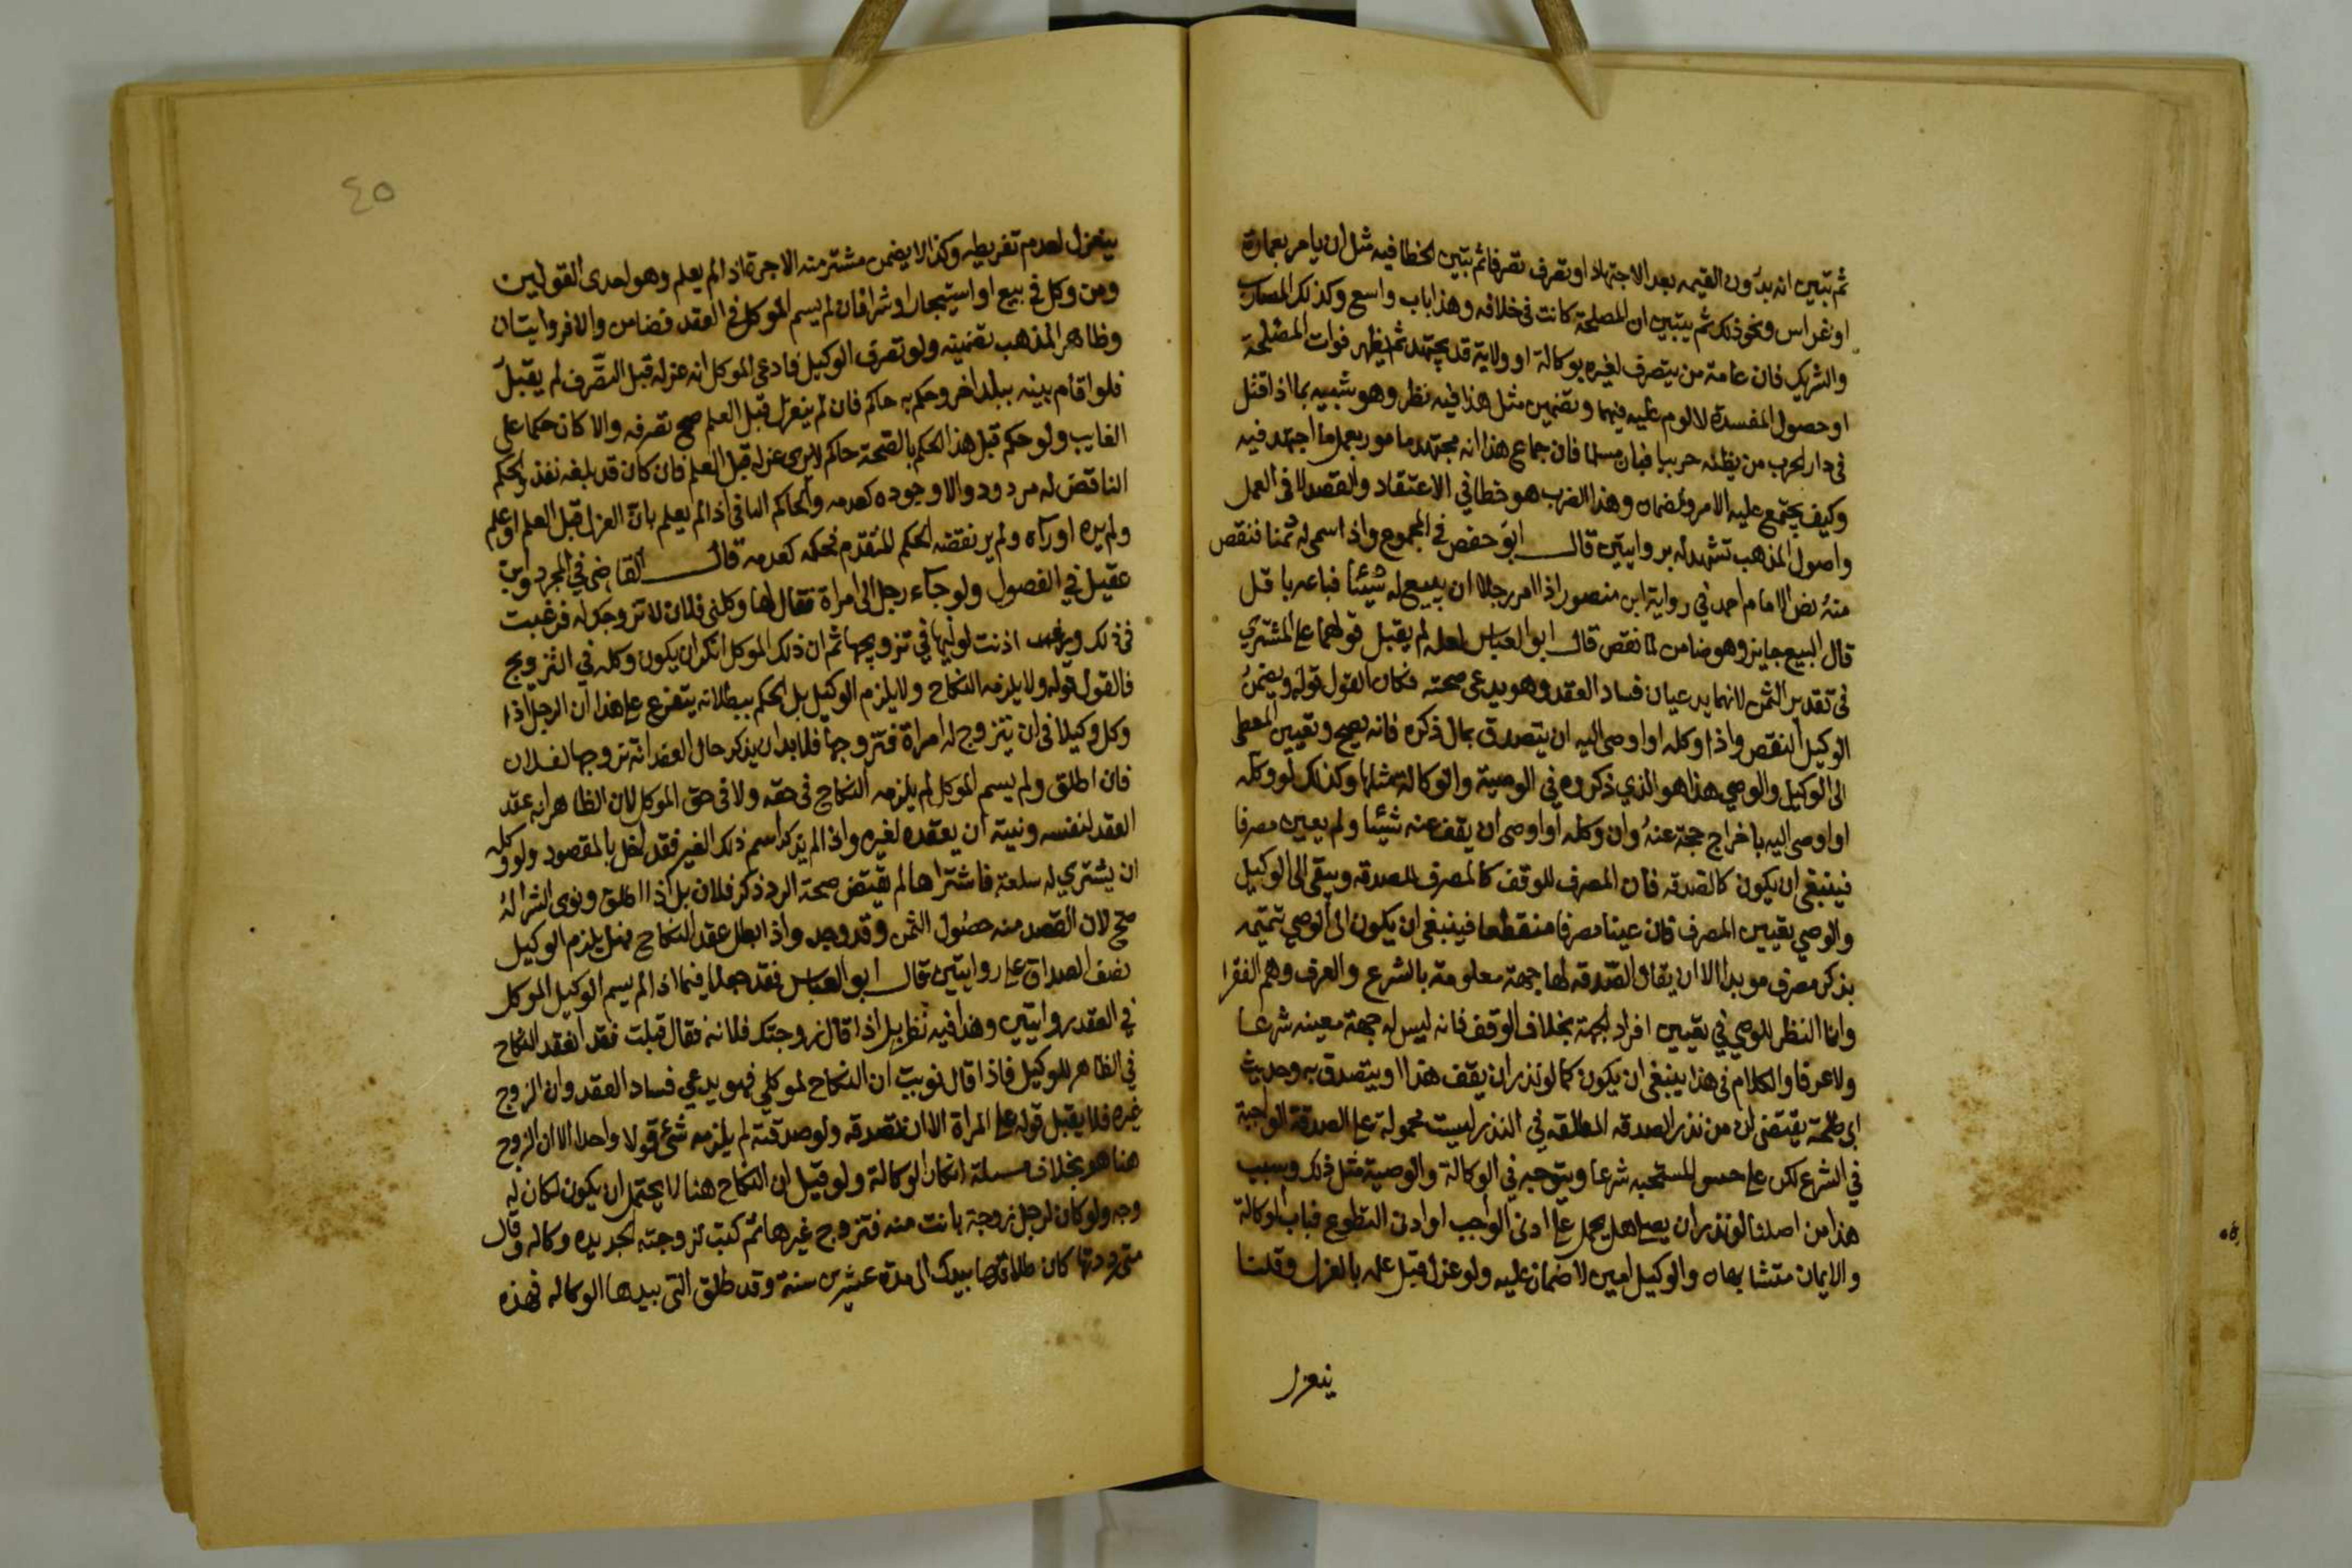 ثم تبين انه بدون القيمه بعد الاجتهاد او تصرف تصرفا ثم تبين الخطا فيه مثل ان يامر بعمارة
او غراس ونحو ذلك ثم يتبين ان المصلحة كانت في خلافه وهذا باب واسع وكذلك المضارب
والشريك فان عامة من يتصرف لغيره بوكالة او ولاية قد يجتهد ثم يظهر فوات المصلحة
او حصول المفسدة لا لوم عليه فيهما وتضمين مثل هذا فيه نظر وهو شبيه بما اذا قتل
في دار الحرب من يظنه حربيا فبان مسلما فان جماع هذا انه مجتهد مامور بعمل ما اجتهد فيه
وكيف يجتمع عليه الامر والضمان وهذا الضرب هو خطا في الاعتقاد والقصد لا في العمل
واصول المذهب تشهد له بروايتين قال ابو حفص في المجموع واذا اسمى له ثمنا فنقص
منه نص الامام احمد في رواية ابن منصور اذا امر رجلا ان يبيع له شيئا فباعه باقل
قال البيع جايز وهو ضامن لما نقص قال ابو العباس لعله لم يقبل قولهما على المشتري
في تقدير الثمن لانهما يدعيان فساد العقد وهو يدعى صحته فكان القول قوله ويضمن
الوكيل النقص واذا وكله او اوصى اليه ان يتصدق بمال ذكره فانه يصح وتعيين المعطى
الى الوكيل والوصي هذا هو الذي ذكروه في الوصية والوكالة مثلها وكذلك لو وكله
او اوصى اليه باخراج حجة عنه وان وكله او اوصى ان يقف عنه شيئا ولم يعين مصرفا
فينبغي ان يكون كالصدقه فان المصرف للوقف كالمصرف للصدقه ويبقى الى الوكيل
والوصي تعيين المصرف فان عينا مصرفا منقطعا فينبغي ان يكون الى الوصي تتميمه
بذكر مصرف موبد الا ان يقال الصدقه لها جهة معلومة بالشرع والعرف وهم الفقرا
وانما النظر للوصي في تعيين افراد الجهة بخلاف الوقف فانه ليس له جهة معينه شرعا
ولا عرفا والكلام في هذا ينبغى ان يكون كما لو نذر ان يقف هذا او يتصدق به وحديث
ابي طلحة يقتضى ان من نذر الصدقه المطلقه في النذر ليست محمولة على الصدقة الواجبة
في الشرع لكن على جنس المستحبه شرعا ويتوجه في الوكالة والوصية مثل ذلك وبسبب
هذا من اصلنا لو نذر ان يصلى هل يحمل على ادنى الواجب او ادنى التطوع فباب الوكالة
والايمان متشابهان والوكيل امين لا ضمان عليه ولو عزل قبل علمه بالعزل وقلنا
ينعزل
٤٥
ينعزل لعدم تفريطه وكذا لا يضمن مشتر منه الاجرة اذا لم يعلم وهو احدى القولين
ومن وكل في بيع او استيجار او شرا فان لم يسم الموكل في العقد فضامن والا فروايتان
وظاهر المذهب تضمينه ولو تصرف الوكيل فادعى الموكل انه عزله قبل التصرف لم يقبل
فلو اقام بينه ببلد اخر وحكم به حاكم فان لم ينعزل قبل العلم صح تصرفه والا كان حكما على
الغايب ولو حكم قبل هذا الحكم بالصحة حاكم لا يرى عزله قبل العلم فان كان قد بلغه نفذ والحكم
الناقض له مردود والا وجوده كعدمه والحاكم الباقى اذا لم يعلم بان العزل قبل العلم او علم
ولم يره او رآه ولم ير نقض الحكم المتقدم فحكمه كعدمه قال القاضى في المجرد وابن
عقيل في الفصول ولو جاء رجل الى امراة فقال لها وكلنى فلان لاتزوجك له فرغبت
في ذلك اذنت لوليها في تزويجها ثم ان ذلك الموكل انكر ان يكون وكله في التزويج
فالقول قوله ولا يلزمه النكاح ولا يلزم الوكيل بل الحكم ببطلانه يتفرع على هذا ان الرجل اذا
وكل وكيلا في ان يتزوج له امراة فتزوجها فلا بد ان يذكر حال العقد انه تزوجها لفلان
فان اطلق ولم يسم الموكل لم يلزمه النكاح في حقه ولا في حق الموكل لان الظاهر انه عقد
العقد لنفسه ونيته ان يعقده لغيره واذا لم يذكر اسم ذلك الغير فقد اخل بالمقصود ولو وكله
ان يشتري له سلعة فاشتراها لم يقتض صحة الرد ذكر فلان بل اذا اطلق ونوى الشرا له
صح لان القصد منه حصول الثمن وقد وجد واذا ابطل عقد النكاح فهل يلزم الوكيل
نصف الصداق على روايتين قال ابو العباس فقد جعلا فيما اذا لم يسم الوكيل الموكل
في العقد روايتين وهذا فيه نظر بل اذا قال زوجتك فلانه فقال قبلت فقد انعقد النكاح
في الظاهر للوكيل فاذا قال نويت ان النكاح لموكلي فهو يدعي فساد العقد وان الزوج
غيره فلا يقبل قوله على المراة الا ان تصدقه ولو صدقته لم يلزمه شئ قولا واحدا الا ان الزوج
هنا هو بخلاف مسلة انكار الوكالة ولو قيل ان النكاح هنا لا يحتمل ان يكون لكان له
وجه ولو كان لرجل زوجة بانت منه فتزوج غيرها ثم كتب لزوجته الجديده وكاله وقال
متى رددتها كان طلاقها بيدك الى مدة عشرين سنة وقد طلق التى بيدها الوكاله فهذه